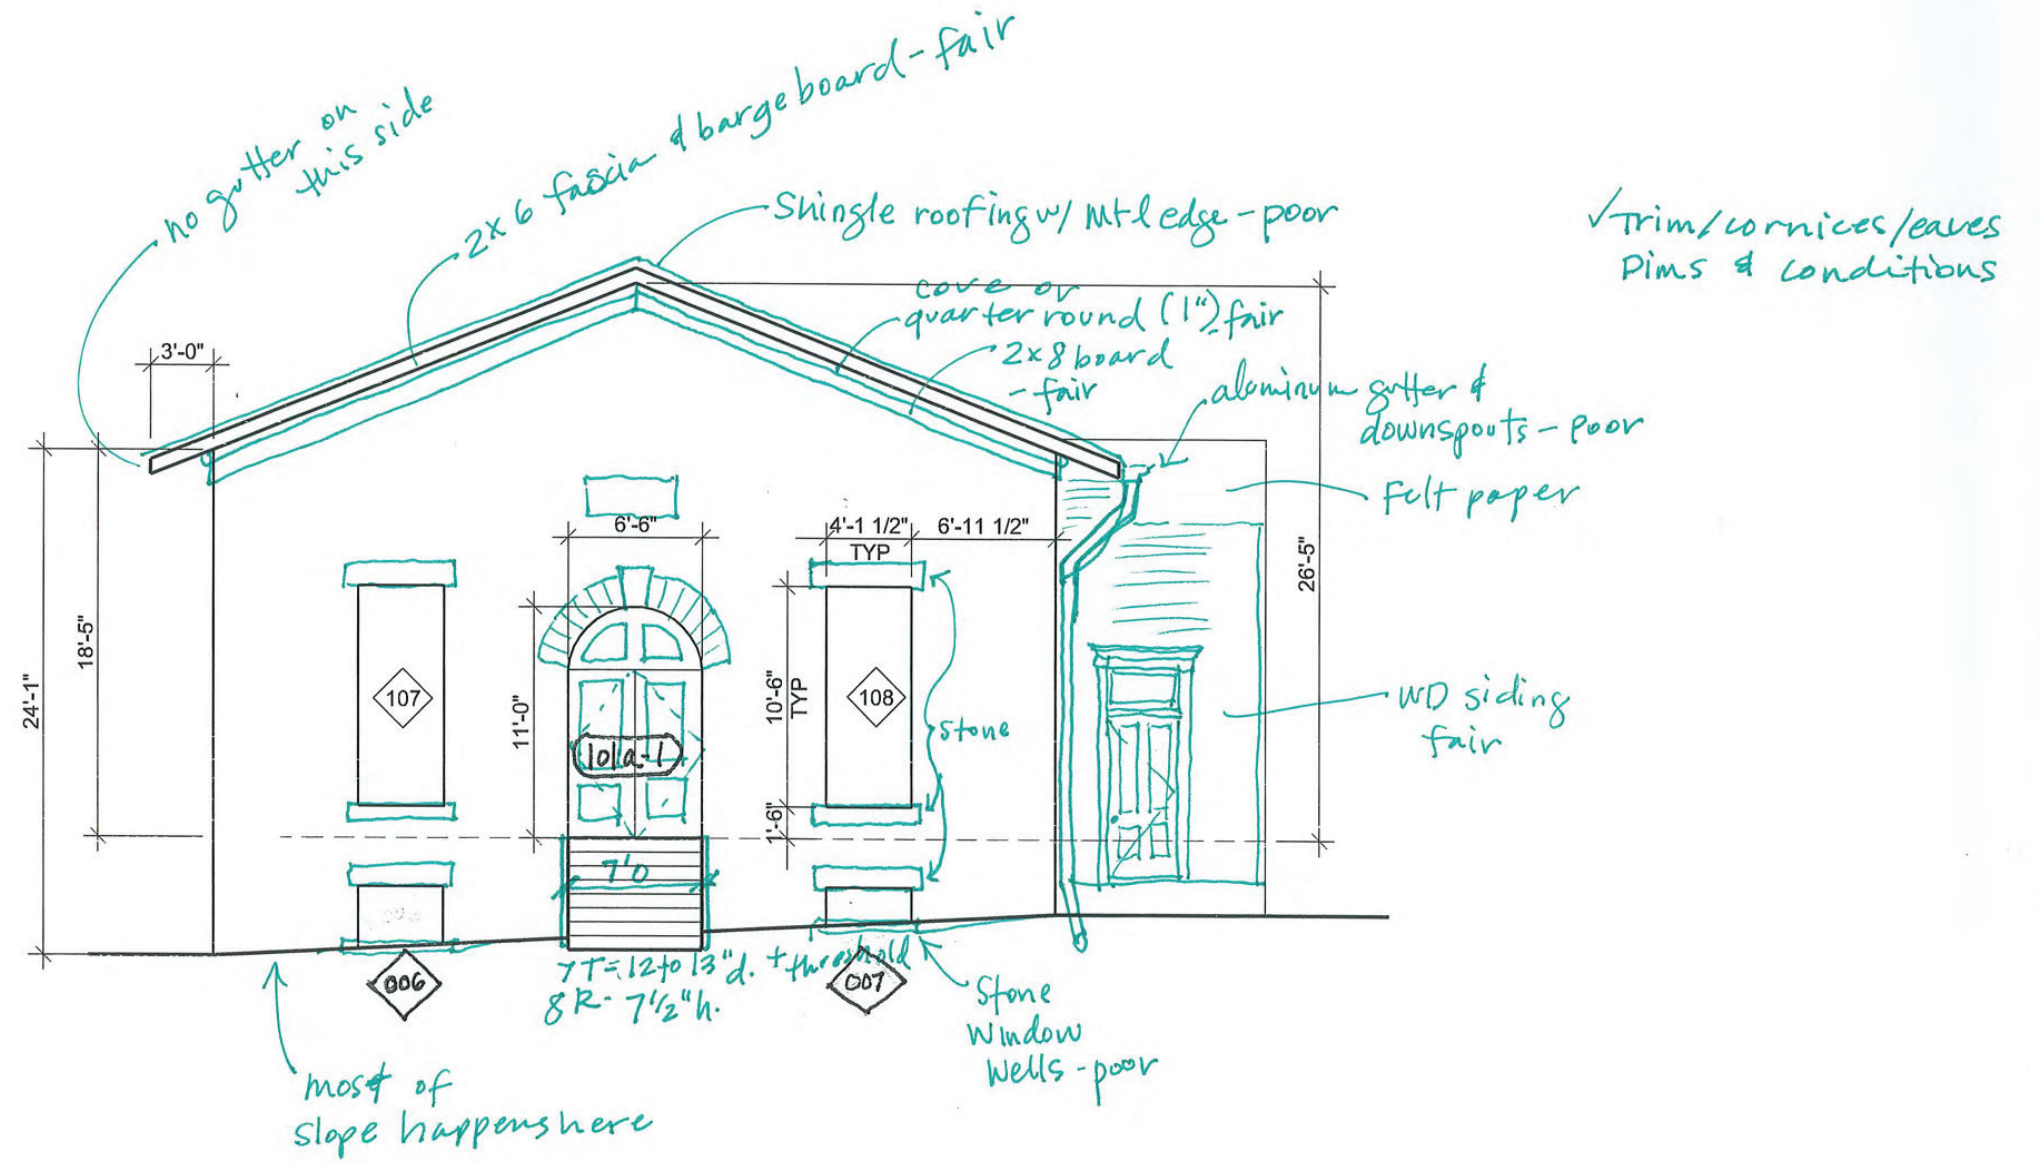 no gutter on
this side
2x6 fascia & bargeboard - fair
Shingle roofing w/ Mtl edge - poor
✓Trim/cornices/eaves
Dims & conditions
cove or
quarter round (1") - fair
2x8 board
- fair
aluminum gutter &
downspouts - poor
Felt paper
3'-0"
6'-6"
4'-1 1/2"
TYP
6'-11 1/2"
26'-5"
18'-5"
24'-1"
11'-0"
10'-6"
TYP
1'-6"
107
101a-1
108
Stone
WD siding
fair
7'0
7T = 12 to 13"d. + threshold
8R - 7 1/2"h.
006
007
Stone
Window
Wells - poor
most of
slope happens here